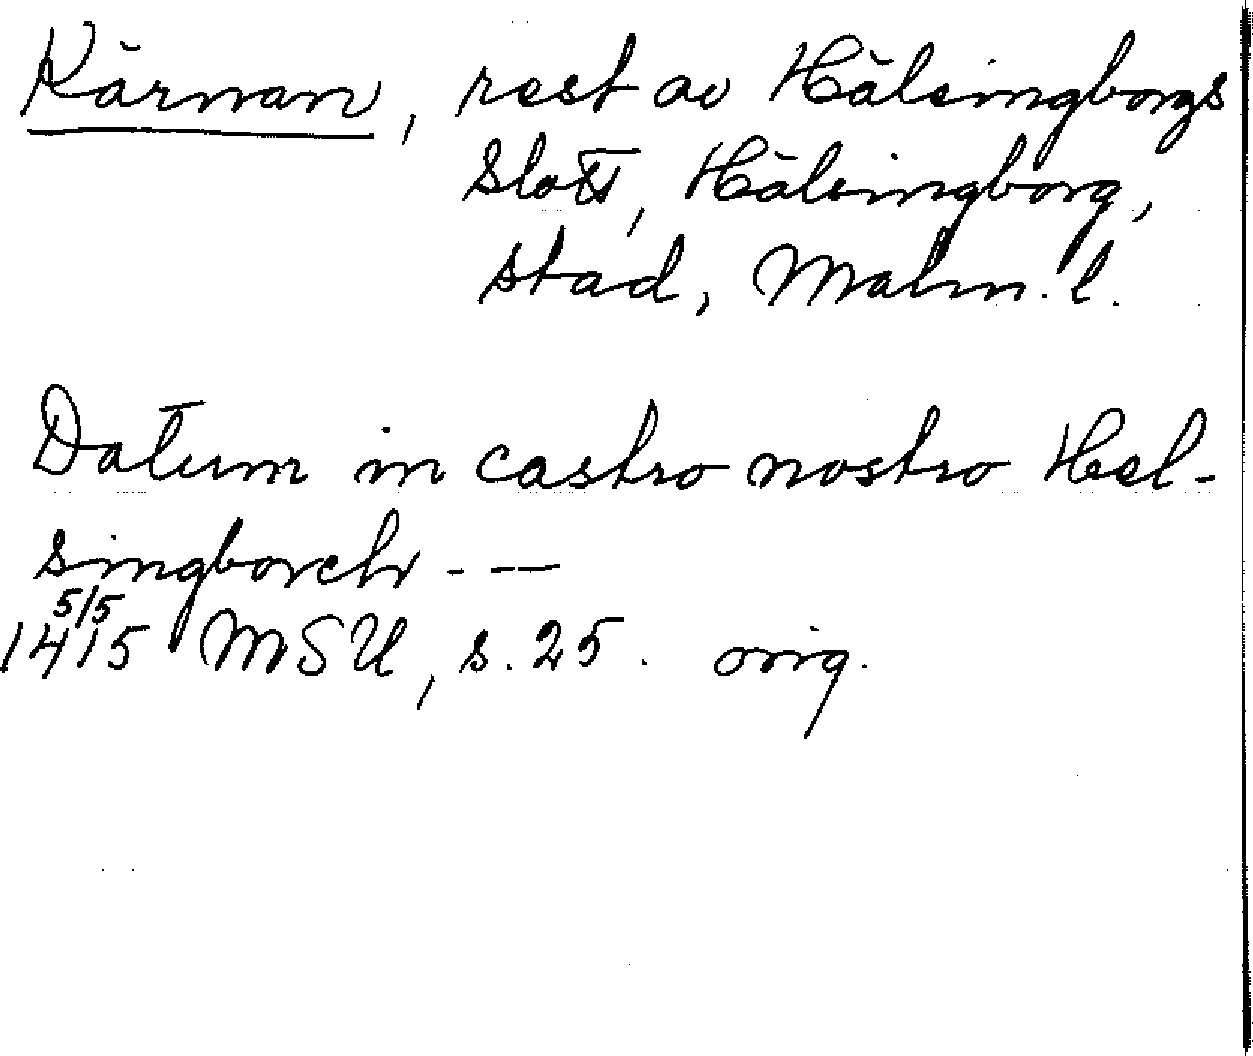 Kärnan, rest av Hälsingborgs
slott, Hälsingborg,
stad, Malm. l.
Datum in castro nostro Hel-
singborch - --
5/5
1415 MSU, s. 25. orig.